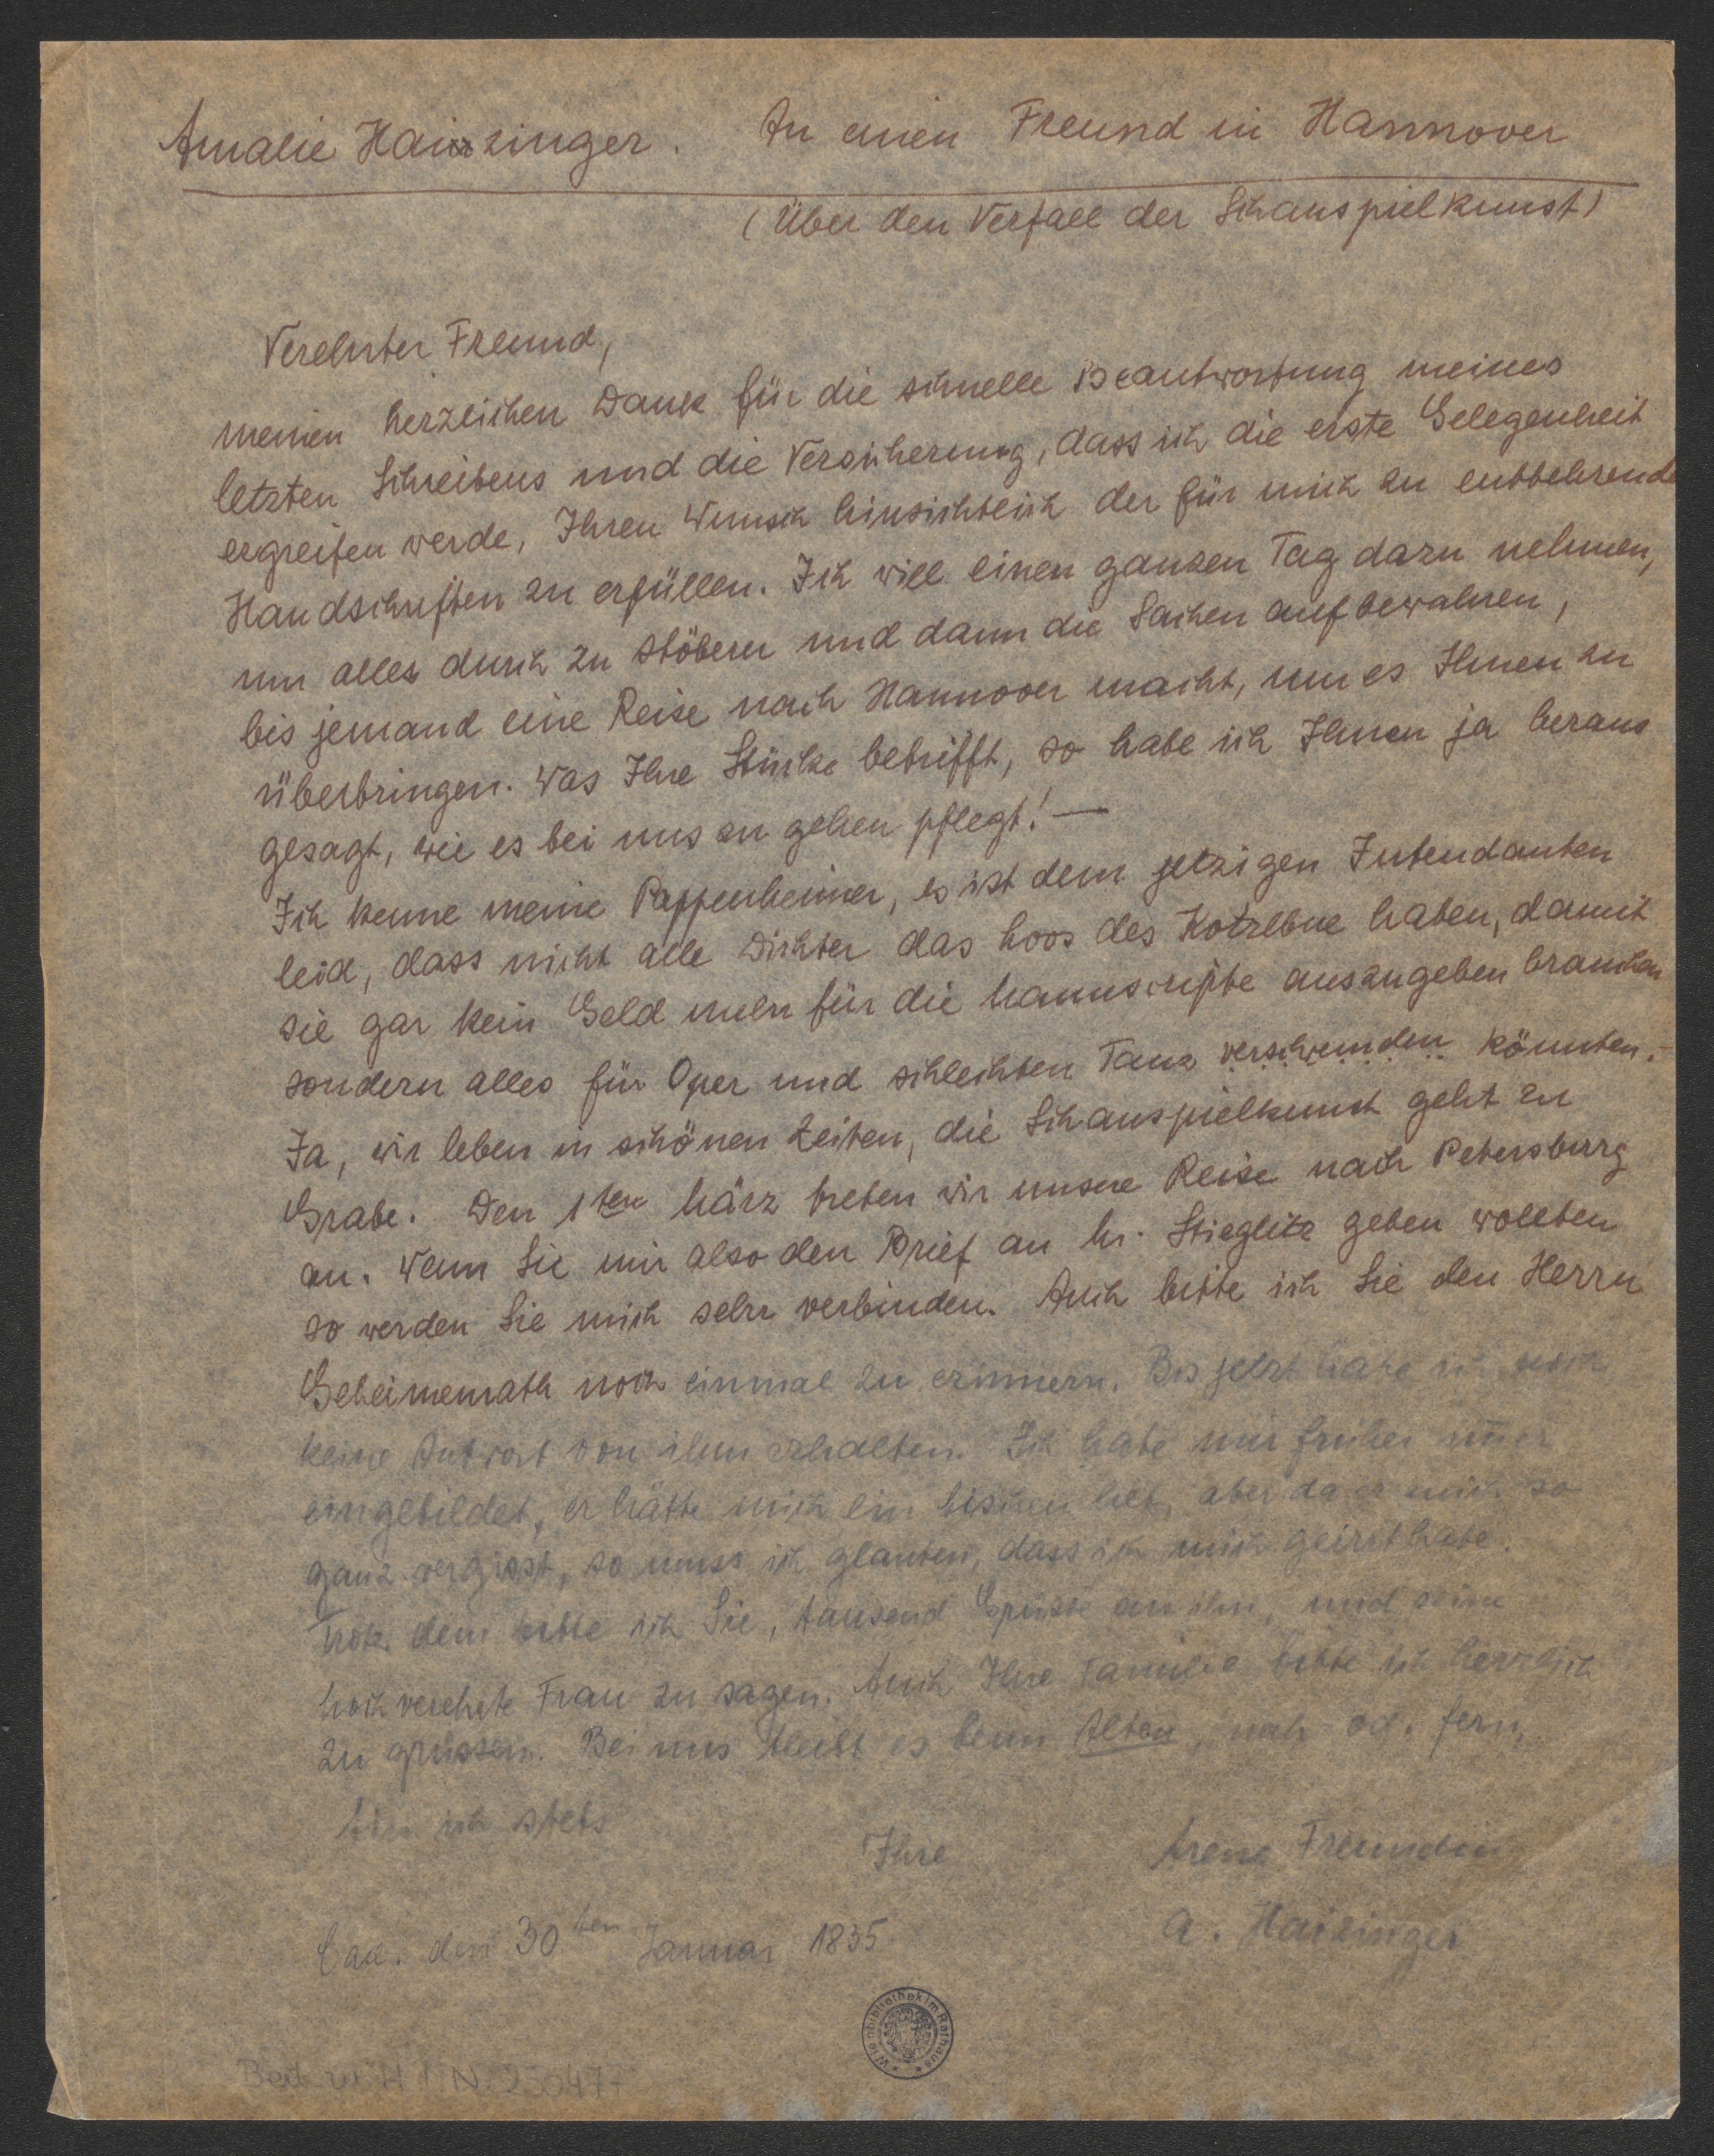 Amalie Haizinger. An einen Freund in Hannover
(Über den Verfall der Schauspielkunst)
Verehrter Freund,
meinen herzlichen Dank für die schnelle Beantwortung meines
letzten Schreibens und die Versicherung, dass ich die erste Gelegenheit
ergreifen werde, Ihren Wunsch hinsichtlich der für mich zu entbehrende
Handschriften zu erfüllen. Ich will einen ganzen Tag dazu nehmen,
um alles durch zu stöbern und dann die Sachen aufbewahren,
bis jemand eine Reise nach Hannover macht, um es Ihnen zu
überbringen. Was Ihre Stücke betrifft, so habe ich Ihnen ja heraus
gesagt, wie es bei uns zu gehen pflegt! —
Ich kenne meine Pappenheimer, es ist dem jetzigen Intendanten
leid, dass nicht alle Dichter das Loos des Kotzebue haben, damit
sie gar kein Geld mehr für die Manuscripte auszugeben brauchen
sondern alles für Oper und schlechten Tanz verschwenden könnten.-
Ja, wir leben in schönen Zeiten, die Schauspielkunst geht zu
Grabe. Den 1ten März treten wir unsere Reise nach Petersburg
an. Wenn Sie mir also den Brief an H. Stieglitz geben wollten
so werden Sie mich sehr verbinden. Auch bitte ich Sie den Herrn
Geheimenrath noch einmal zu erinnern. Bis jetzt habe ich noch
keine Antwort von ihm erhalten. Ich habe mir früher im̅er
eingebildet, er hätte mich ein bischen lieb, aber da er mich so
ganz vergisst, so muss ich glauben, dass ich mich geirrt habe.
Trotz dem bitte ich Sie, tausend Grüsse an ihn, und seine
hoch verehrte Frau zu sagen. Auch Ihre Familie bitte ich herzlich
zu grüssen. Bei uns bleibt es beim Alten, nah od. fern,
bin ich stets
Ihre treue Freundin
A. Haizinger
Carl. den 30ten Januar 1835
Wienbibliothek im Rathaus
Beil. zu H. I. N. 250477